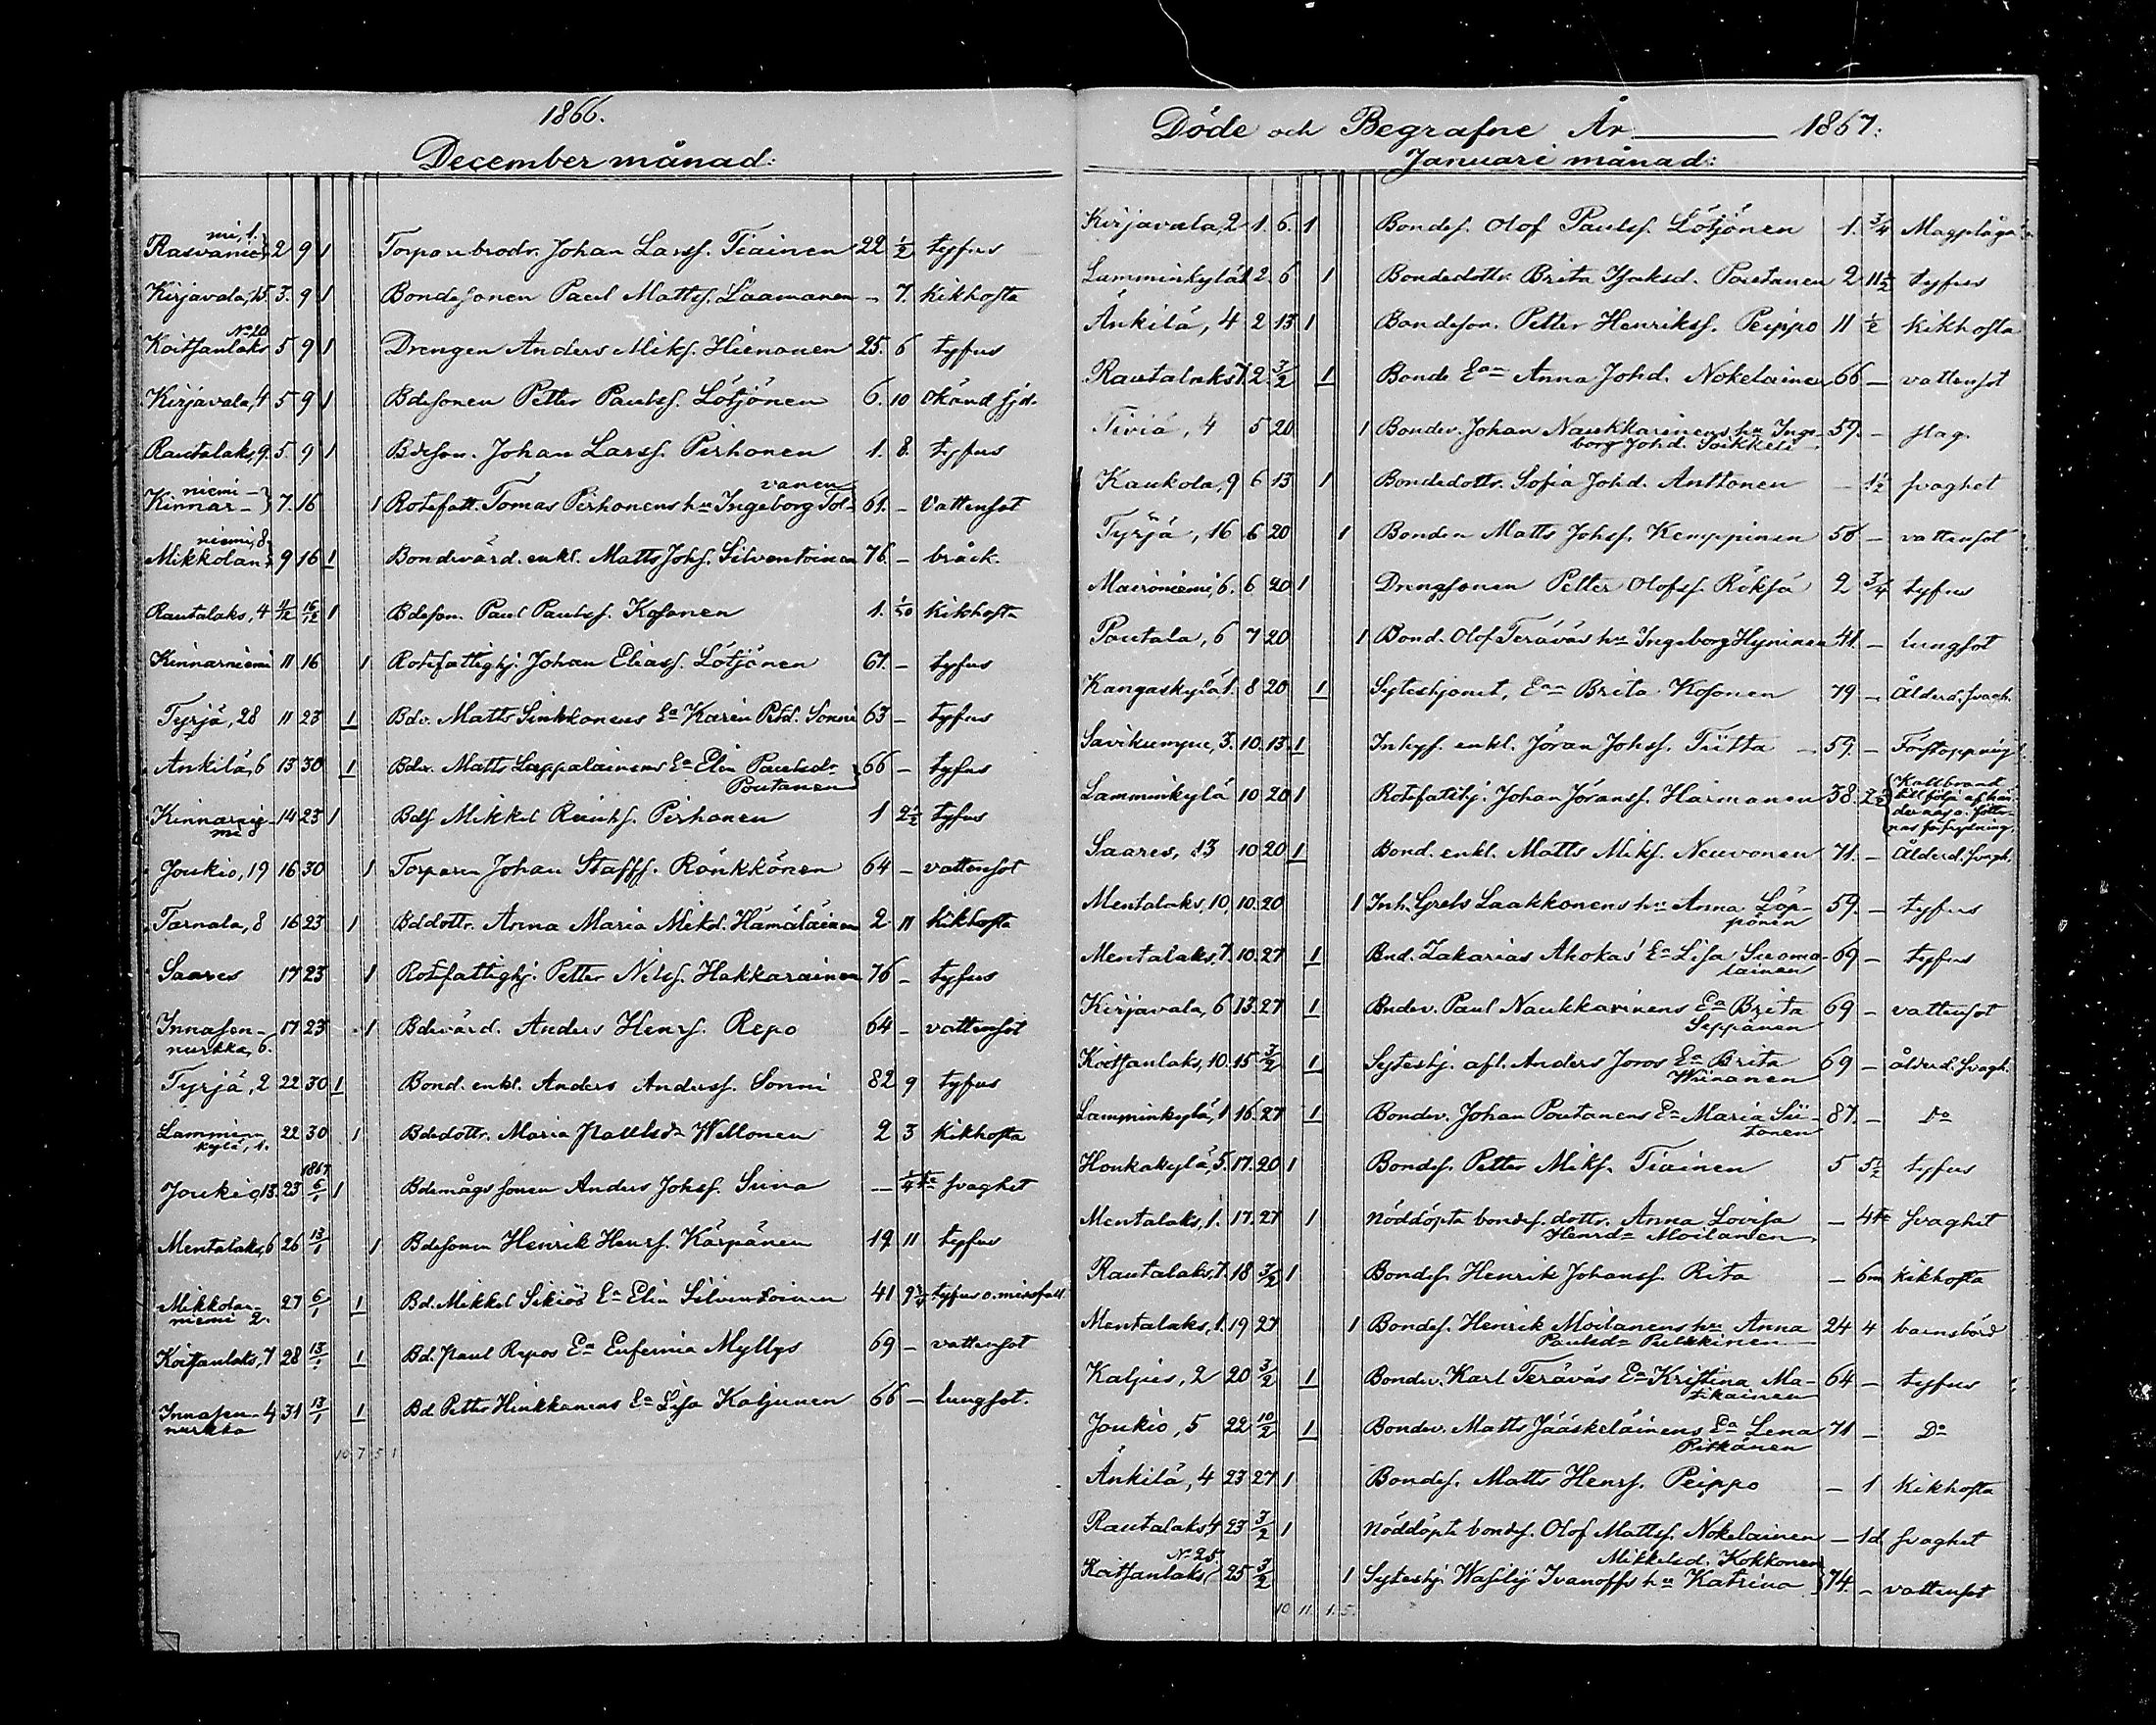 1866.
December månad:
Rasvanie} ni, 1. 2 9 1 Torparebrodr. Johan Larsf. Tiainen 22 1/2 tyfus
Kirjavala, 15. 3. 9 1 Bondesonen Paul Mattsf. Laamanen - 7. Kikhosta
Koitsanlaks No 20 5 9 1 Drengen Anders Miksf. Hienonen 25. 6 tyfus
Kirjavala, 4 5 9 1 Bdesonen Petter Paulsf. Lötjönen 6. 10 Okänd sjd.
Rautalaks, 9. 5 9 1 Bdeson. Johan Larsf. Pirhonen 1. 8. tyfus
Kinnar- niemi-} 7. 16 1 Rotefatt. Tomas Pirhonens hu Ingeborg Tol- vanen 61. - Vattensot
Mikkolan- niemi, 8} 9 16 1 Bondevärd. enkl. Matts Johsf. Silventoinen 76. - bråck.
Rautalaks, 4 11/12 16/12 1 Bdeson. Paul Paulsf. Kosonen 1. 1/10 Kikhosta
Kinnarniemi 11 16 1 Rotefattighj. Johan Eliasf. Lötjönen 61. - tyfus
Tyrjä, 28 11 23 1 Bdv. Matts Sinkkonens Ea Karin Petd. Sonni 63 - tyfus
Ankilä, 6 13 30 1 Bdv. Matts Lappalainens Ea Elin Paulsd. 66 - tyfus
Poutanen
Kinnarnie- 14 23 1 Bdsf. Mikkel Reinhsf. Pirhonen 1 2 1/2 tyfus
mi 8
Joukio, 19 16 30 1 Torparen Johan Staffsf. Rönkkönen 64 - vattensot
Tarnala, 8 16 23 1 Bddottr. Anna Maria Mikd. Hämäläinen 2 11 kikhosta
Saares 17 23 1 Rotefattighj. Petter Nilsf. Hakkarainen 76 - tyfus
Innasen- 17 23 1 Bdevärd. Anders Henrsf. Repo 64 - vattensot
nurkka, 6.
Tyrjä, 2 22 30 1 Bond. enkl. Anders Andersf. Sonni 82 9 tyfus
Lammin- 22 30 1 Bdedottr. Maria Paulsd. Wellonen 2 3 Kikhosta
kylä, 1.
1867
Joukio, 13. 23 6/1 1 Bdemågs sonen Anders Johsf. Suna - svaghet
Mentalaks, 6 26 13/1 1 Bdesonen Henrik Henrsf. Kärpänen 19 11 tyfus
Mikkolan- 27 6/1 1 Bd. Mikkel Sikiös Ea Elin Silventoinen 41 9 3/4 tyfus o. missfall
niemi 2.
Koitsanlaks, 7 28 13/1 1 Bd. Paul Repos Ea Eufemia Myllys 69 - vattensot
Innasen- 4, 31 13/1 1 Bd. Petter Hinkkanens Ea Lisa Kaljunen 66 - lungsot.
nurkka
10 7 5 1
Döde och Begrafne År 1867:
Januari månad:
Kirjavala, 2 1. 6. 1 Bondes. Olof Paulsf. Lötjönen 1. 3/4 Magplåga
Lamminkylä 1 2. 6 1 Bondedottr. Brita Isaksd. Poutanen 2 11 1/2 tyfus
Änkilä, 4 2 13 1 Bondeson. Petter Henriksf. Peippo 11 1/2 kikhosta
Rautalaks 7. 2. 3/2 1 Bonde Ean Anna Johd. Nokelainen 66 - vattensot
Tiviä, 4 5 20 1 Bondev. Johan Naukkarinens hu Inge- 59. - slag.
borg Johd. Soikkeli
Kaukola, 9 6 13 1 Bondedottr. Sofia Johd. Anttonen - 1 1/2 svaghet
Tyrjä, 16 6 20 1 Bonden Matts Johsf. Kemppinen 56 - vattensot
Maironiemi, 6. 6 20 1 Drengsonen Petter Olofsf. Röksä 2 3/4 tyfus
Poutala, 6 7 20 1 Bond. Olof Teräväs hu Ingeborg Hyninen 41. - lungsot
Kangaskylä 1. 8 20 1 Syteshjonet, Ean Brita Kosonen 79 - Ålderd. svagh.
Savikumpu, 3. 10. 13 1 Inhysf. enkl. Jöran Johsf. Tiitta 59. - Förstoppning
Lamminkylä 10 20 1 Rotefatthj. Johan Jöransf. Harmanen 38. 2 1/2 {Kallbrand
till följe af hän-
dernas o. fötter-
nas förfrysning.
Saares, 13 10 20 1 Bond. enkl. Matts Miksf. Neuvonen 71. - Ålderd. svagh.
Mentalaks, 10, 10. 20 1 Inh. Grels Laakkonens hu Anna Löp- 59. - tyfus
pönen
Mentalaks, 7. 10. 27 1 Bnd. Zakarias Ahokas' Ea Lisa Suoma- 69 - tyfus
lainen
Kirjavala, 6 13. 27 1 Bndev. Paul Naukkarinens Ea Brita 69 - vattensot
Seppänen
Koitsanlaks, 10. 15 3/2 1 Syteshj. afl. Anders Joros Ea Brita 69 - ålderd. svagh.
Wiinanen
Lamminkylä, 1 16. 27 1 Bondev. Johan Poutanens Ea Maria Sii- 87. - Do
tonen
Honkakylä, 5. 17. 20 1 Bondes. Petter Miksf. Tiainen 5 5 1/2 tyfus
Mentalaks, 1. 17. 27 1 Nöddöpta bondes. dottr. Anna Lovisa - svaghet
Henrd. Moilanen
Rautalaks, 7. 18 3/2 1 Bondes. Henrik Johansf. Rita - 6m kikhosta
Mentalaks, 1. 19 27 1 Bondes. Henrik Moilanens hu Anna 24 4 barnsbörd
Paulsd. Pulkkinen
Kaljus, 2 20 3/2 1 Bondev. Karl Teräväs Ea Kristina Ma- 64 - tyfus
tikainen
Joukio, 5 22 10/2 1 Bondev. Matts Jääskeläinens Ea Lena 71 - Do
Pitkänen
Änkilä, 4 23 27 1 Bondes. Matts Henrsf. Peippo - 1 Kikhosta
Rautalaks 4 23 3/2 1 Nöddöpte bondes. Olof Mattsf. Nokelainen - 1d svaghet
No 25. Mikkelsd. Kokkonen
Koitsanlaks 25 3/2 1 Syteshj. Wasilij Ivanoffs hu Katrina} 74. - vattensot
10 11 1. 5.